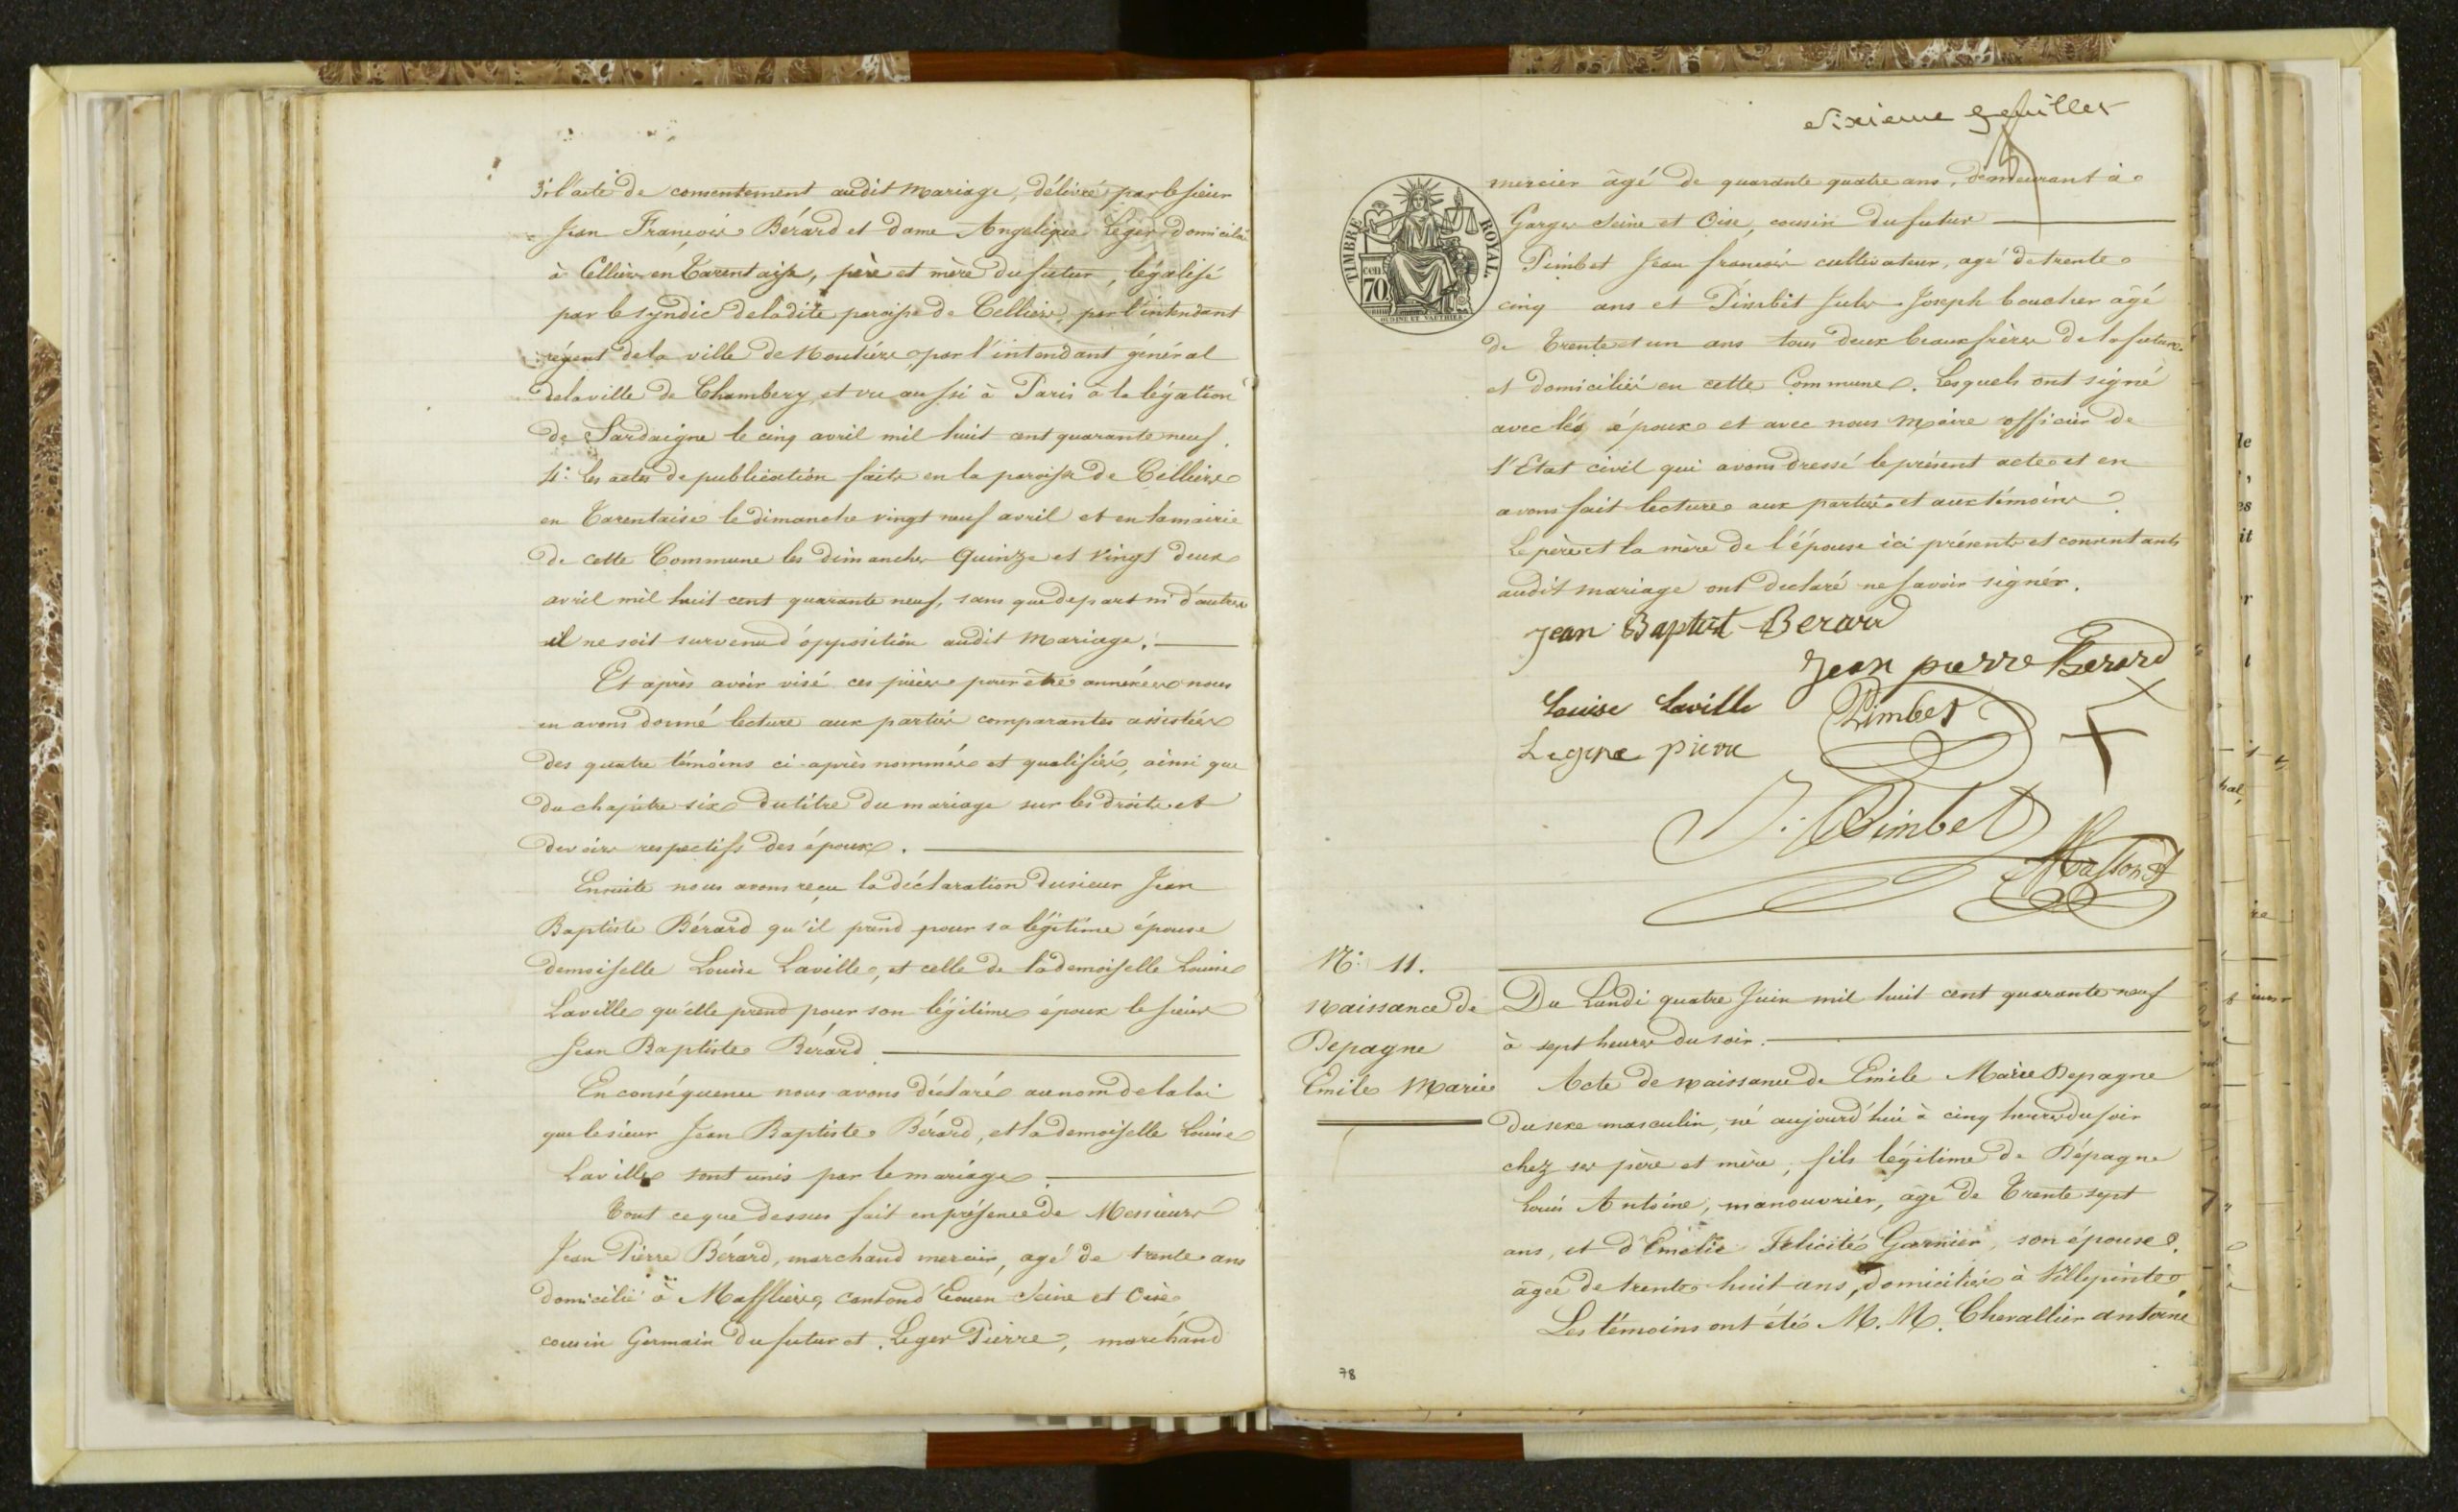 3° l'acte de consentement audit mariage, délivré par le sieur
Jean François Bérard et dame Angelique Léger domicilié
à Cellier en Tarentaise, père et mère du futur, légalisé
par le syndic de ladite paroisse de Cellier, par l'intendant
régent de la ville de Moutiers, par l'intendant général
de la ville de Chambery, et vu aussi à Paris à la légation
de Sardaigne le cinq avril mil huit cent quarante neuf.
4° les actes de publication faits en la paroisse de Celliers
en Tarentaise le dimanche vingt neuf avril et en la mairie
de cette Commune les dimanches Quinze et Vingt deux
avril mil huit cent quarante neuf, sans que de part ni d'autre
il ne soit survenu d'opposition audit Mariage.
Et après avoir visé ces pièces pour être annexées nous
en avons donné lecture aux parties comparantes assistées
des quatre témoins ci-après nommés et qualifiés, ainsi que
du chapitre six du titre du mariage sur les droits et
devoirs respectifs des époux.
Ensuite nous avons reçu la déclaration du sieur Jean
Baptiste Bérard qu'il prend pour sa légitime épouse
demoiselle Louise Laville, et celle de la demoiselle Louise
Laville qu'elle prend pour son légitime époux le sieur
Jean Baptiste Bérard
En conséquence nous avons déclaré au nom de la loi
que le sieur Jean Baptiste Bérard, et la demoiselle Louise
Laville sont unis par le mariage.
Tout ce que dessus fait en présence de Messieurs
Jean Pierre Bérard, marchand mercier, agé de trente ans
domicilié à Maffliers, canton d'Ecouen Seine et Oise
cousin Germain du futur et Leger Pierre, marchand
sixieme feuillet
TIMBRE ROYAL.
70 cen
mercier âgé de quarante quatre ans, demeurant à
Garges Seine et Oise, cousin du futur
Pimbet Jean françois cultivateur, agé de trente
cinq ans et Pimbet Jules Joseph boucher âgé
de Trente et un ans tous deux beaux frères de la future
et domiciliés en cette Commune. Lesquels ont signé
avec les époux et avec nous Maire officier de
l'Etat civil qui avons dressé le présent acte et en
avons fait lecture aux parties et aux témoins.
Le père et la mère de l'épouse ici présents et consentants
audit mariage ont declaré ne savoir signer.
Jean Baptist Berard
Jean pierre Berard
Louise Laville
Pimbet
Legere pierre
J. Pimbet
Masson
N° 11.
Naissance de
Depagne
Emile Marie
Du Lundi quatre Juin mil huit cent quarante neuf
à sept heures du soir.
Acte de naissance de Emile Marie Depagne
du sexe masculin, né aujourd'hui à cinq heures du soir
chez ses père et mère, fils légitime de Dépagne
Louis Antoine, manouvrier, âgé de Trente sept
ans, et d'Emélie Félicité Garnier, son épouse,
agée de trente huit ans, domiciliés à Villepinte.
Les témoins ont été M. M. Chevallier antoine
78